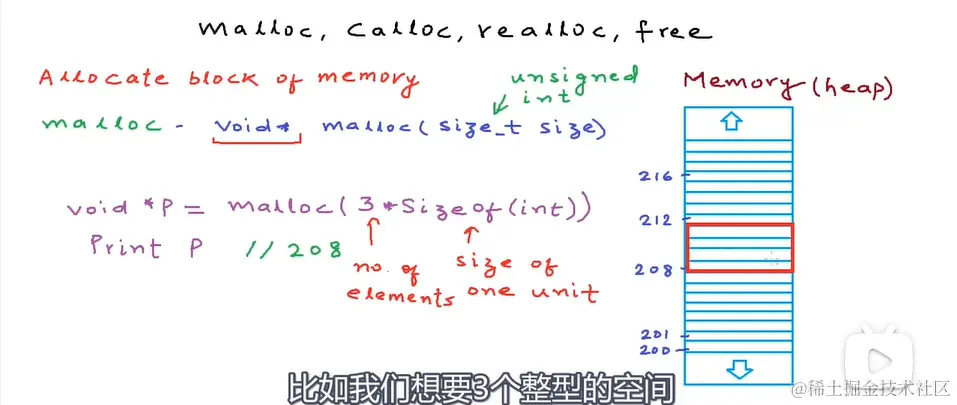 malloc, calloc, realloc, free
Allocate block of memory
unsigned
int
malloc - void* malloc(size_t size)
void *P = malloc(3*Sizeof(int))
Print P //208
no. of
elements
size of
one unit
Memory(heap)
216
212
208
201
200
比如我们想要3个整型的空间
@稀土掘金技术社区